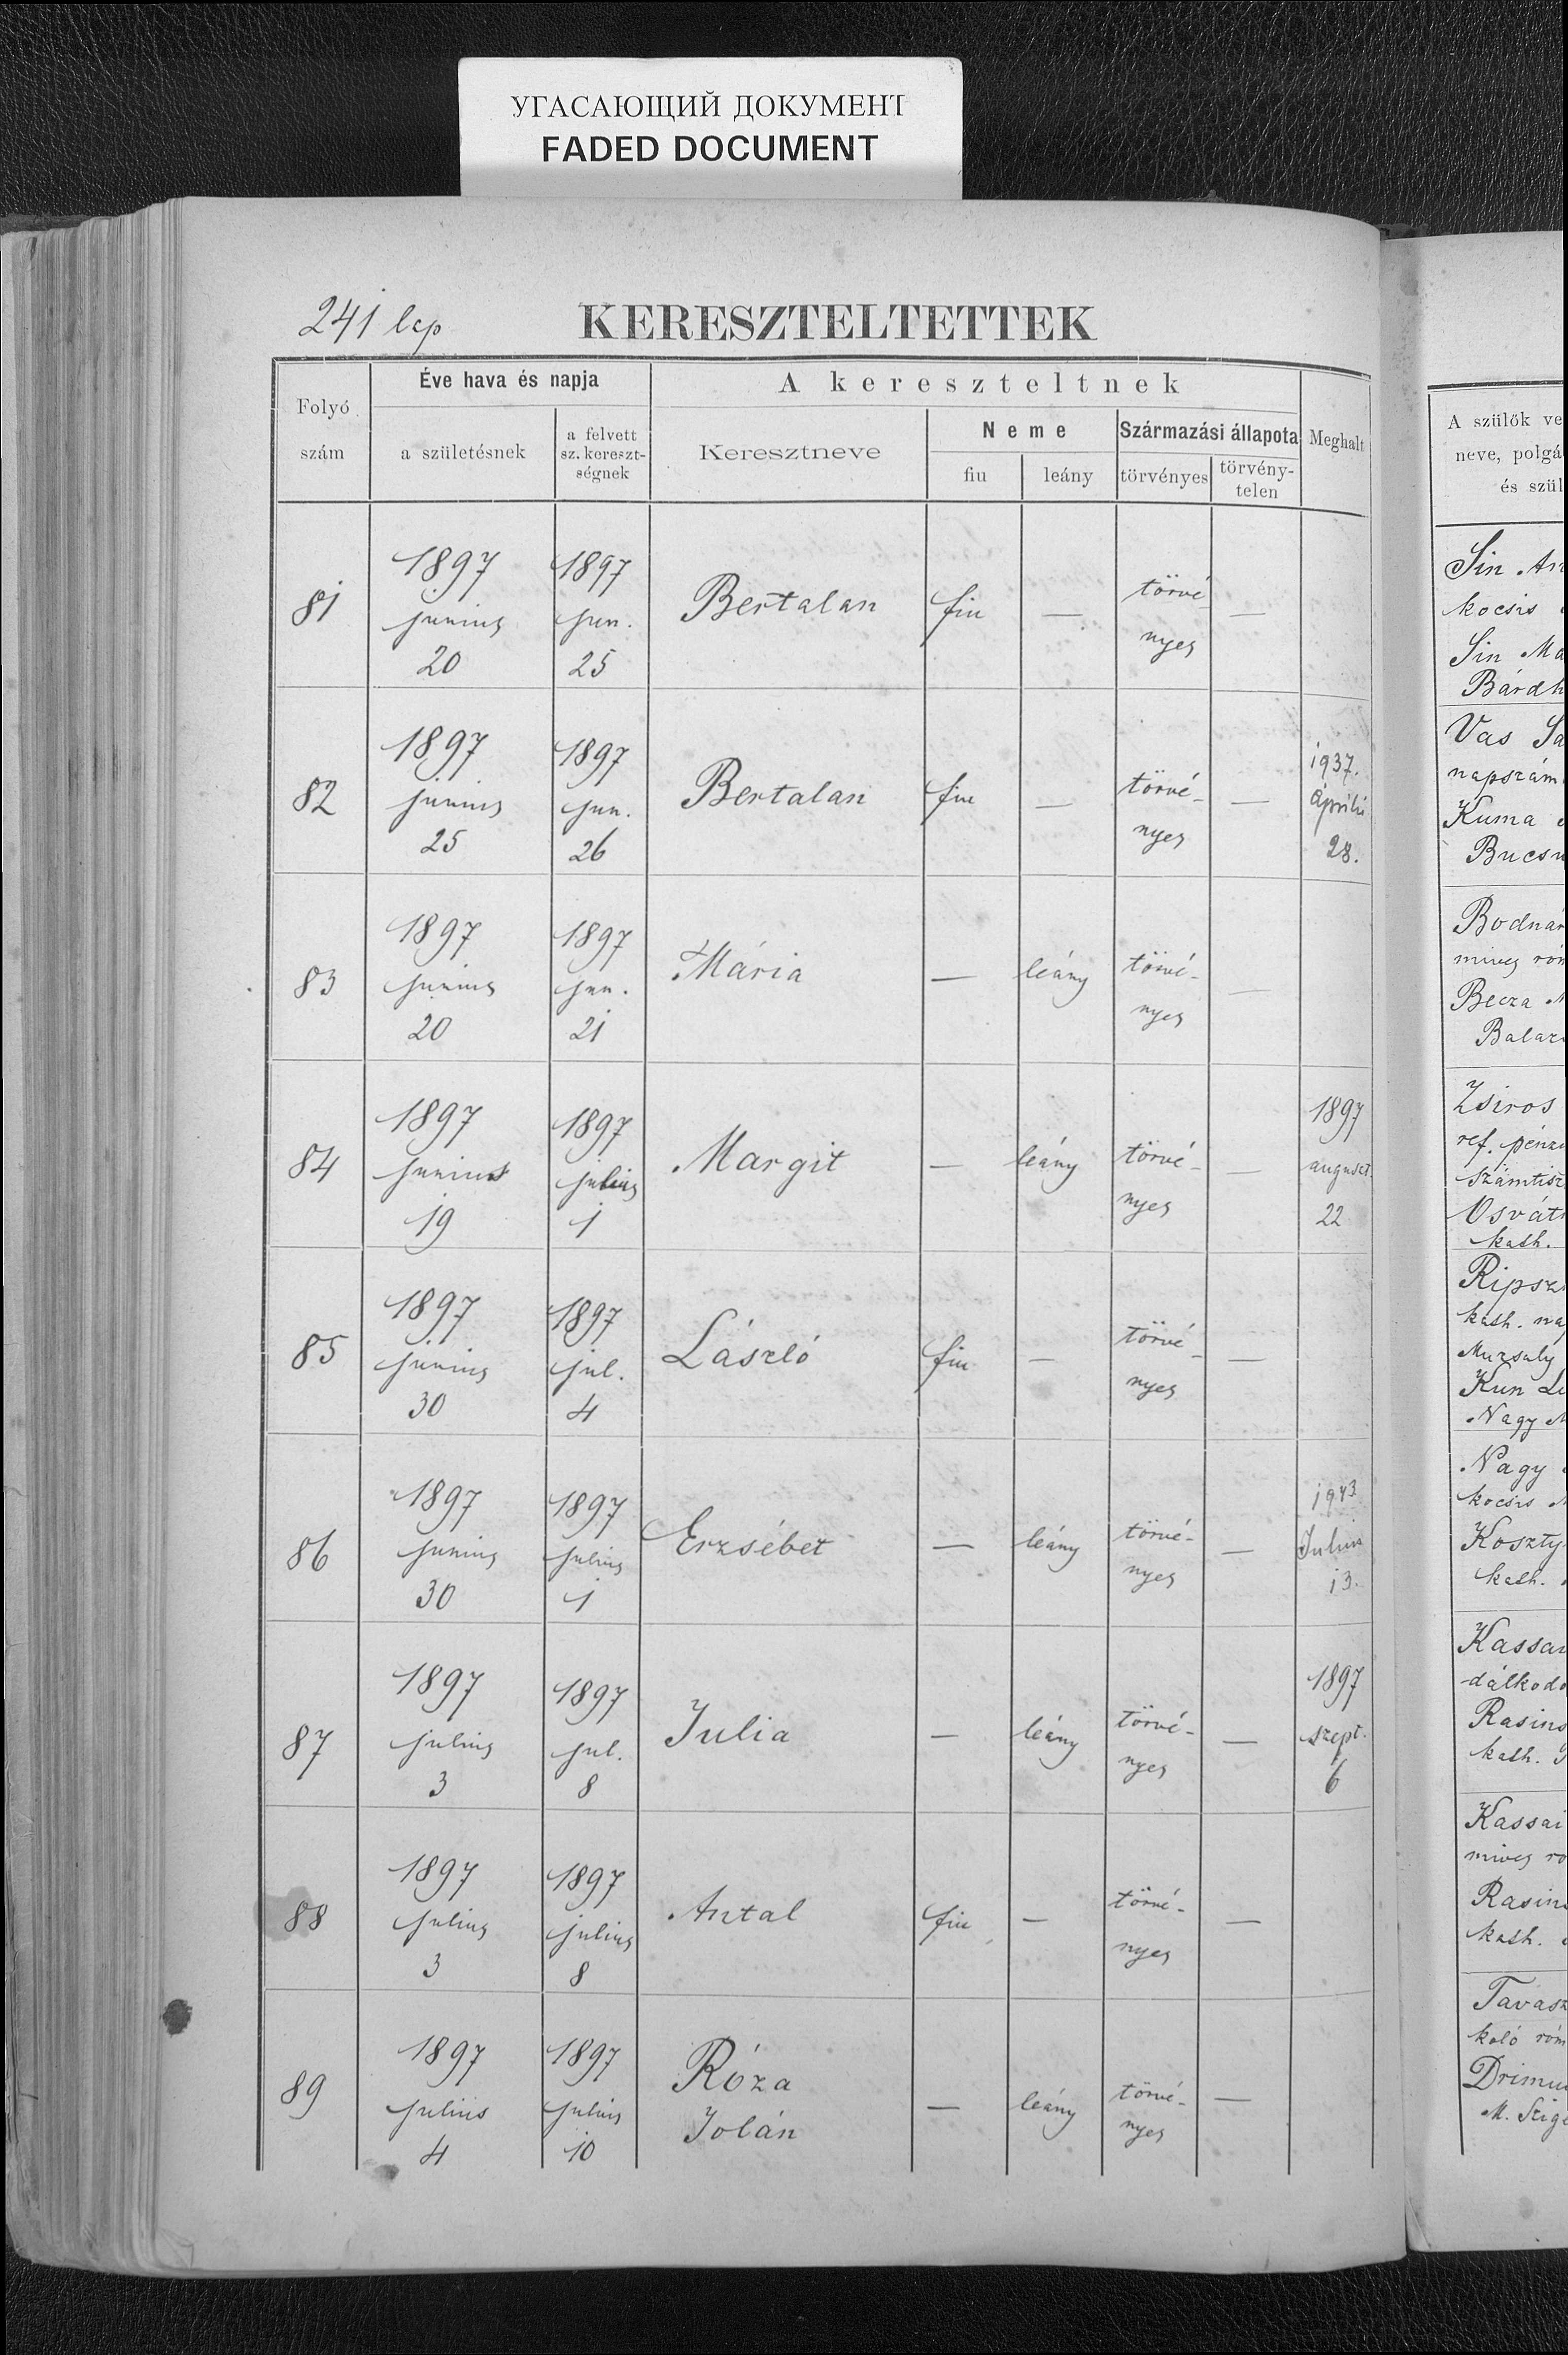 УГАСАЮЩИЙ ДОКУМЕНТ
FADED DOCUMENT
241 lap
KERESZTELTETTEK
Folyó
szám
Éve hava és napja
a születésnek
a felvett
sz. kereszt-
ségnek
A kereszteltnek
Keresztneve
Neme
fiu
leány
Származási állapota
törvényes
törvény-
telen
Meghalt
81
1897
junius
20
1897
jun.
25
Bertalan
fiu
—
törvé
nyes
—
82
1897
junius
25
1897
jun.
26
Bertalan
fiu
—
törvé-
nyes
—
1937.
április
28.
83
1897
junius
20
1897
jun.
21
Mária
—
leány
törvé-
nyes
—
84
1897
junius
19
1897
julius
1
Margit
—
leány
törvé-
nyes
—
1897
auguszt.
22
85
1897
junius
30
1897
jul.
4
László
fiu
—
törvé-
nyes
—
86
1897
junius
30
1897
julius
1
Erzsébet
—
leány
törvé-
nyes
—
1943
Julius
13.
87
1897
julius
3
1897
jul.
8
Julia
—
leány
törvé-
nyes
—
1897
szept.
6
88
1897
julius
3
1897
julius
8
Antal
fiu
—
törvé-
nyes
—
89
1897
julius
4
1897
julius
10
Róza
Jolán
—
leány
törvé-
nyes
—
A szülők ve
neve, polgá
és szül
Sin An
kocsis
Sin Ma
Bárdh
Vas Sa
napszám
Kuma
Bucsu
Bodnár
mives róm
Becza M
Balaz
Zsiros
ref. pénz
számtisz
Osvát
kath.
Ripsz
kath. na
Muzsaly
Kun
Nagy M
Nagy
kocsis
Koszty
kath.
Kassai
dálkodó
Rasins
kath.
Kassai
mives ro
Rasin
kath.
Tavasz
kaló róm
Drimu
M. Szig